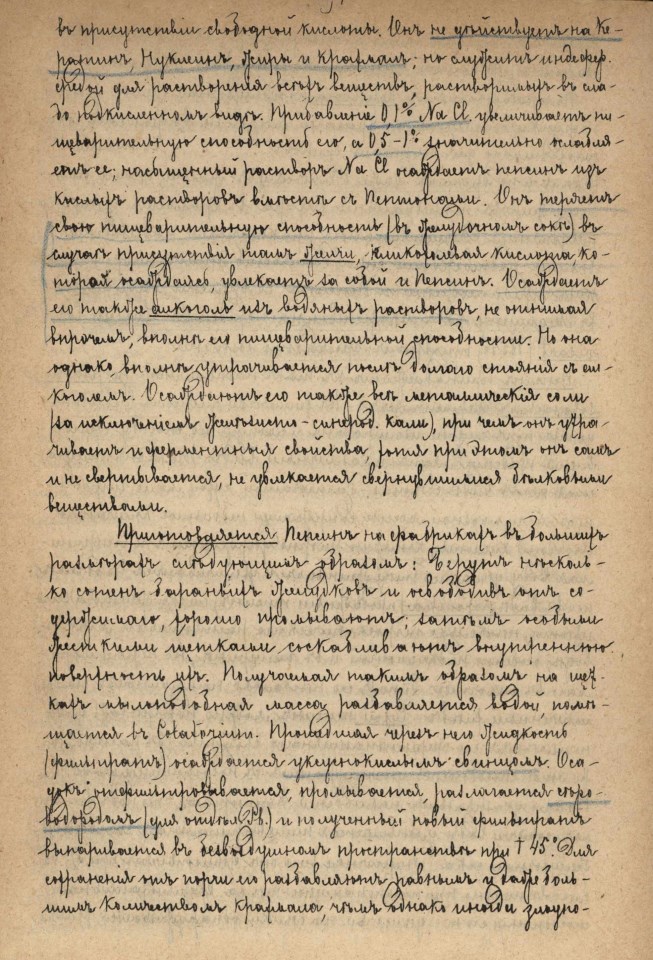 въ присутствіи свободной кислоты. Онъ не дѣйствуетъ на Ке-
ратинъ, Нуклеинъ, Жиры и Крахмалъ; но служитъ индефер.
средой для растворенія всѣхъ веществъ, растворимыхъ въ сла-
бо подкисленномъ видѣ. Прибавленіе 0,1% NaCl. увеличиваетъ пи-
щеварительную способность его, а 0,5–1% значительно ослабля-
етъ ее; насыщенный растворъ NaCl осаждаетъ пепсинъ изъ
кислыхъ растворовъ вмѣстѣ съ Пептонами. Онъ теряетъ
свою пищеварительную способность (въ желудочномъ сокѣ) въ
случаѣ присутствія тамъ желчи, гликохолевая кислота, ко-
торая осаждаясь, увлекаетъ за собой и Пепсинъ. Осаждаетъ
его также алкоголь изъ водяныхъ растворовъ, не отнимая
впрочемъ, вполнѣ его пищеварительной способности. Но она
однако, вполнѣ утрачивается послѣ долгаго стоянія съ ал-
коголемъ. Осаждаютъ его также всѣ металлическія соли
(за исключеніемъ Желѣзисто-синерод. кали), при чемъ онъ утра-
чиваетъ и ферментныя свойства, хотя при этомъ онъ самъ
и не свертывается, не увлекается свернувшимися бѣлковыми
веществами.
Приготовляется Пепсинъ на фабрикахъ въ большихъ
размѣрахъ слѣдующимъ образомъ: Берутъ нѣсколь-
ко сотенъ бараньихъ желудковъ и освободивъ отъ со-
держимаго, хорошо промываютъ; затѣмъ особыми
жесткими щетками соскабливаютъ внутреннюю
поверхность ихъ. Получаемая такимъ образомъ на щет-
кахъ мылоподобная масса разбавляется водой, помѣ-
щается въ Colatorium. Прошедшая черезъ него жидкость
(фильтратъ) осаждается уксуснокислымъ свинцомъ. Оса-
докъ отфильтровывается, промывается, разлагается сѣро-
водородомъ (для отдѣл. Pb.) и полученный новый фильтратъ
выпаривается въ безвоздушномъ пространствѣ при † 45°. Для
сохраненія отъ порчи его разбавляютъ равнымъ и даже боль-
шимъ количествомъ крахмала, чѣмъ однако иногда злоупо-